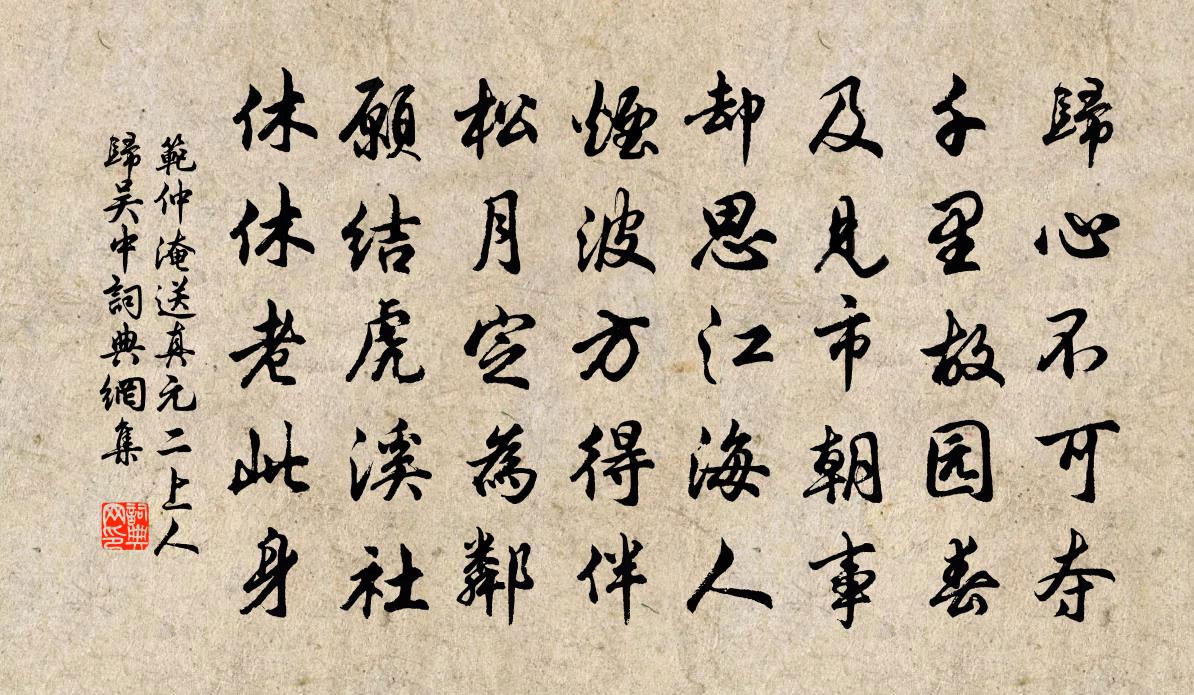 歸心不可夺
千里故园春
及見市朝事
却思江海人
煙波方得伴
松月定為鄰
願結虎溪社
休休老此身
範仲淹送真元二上人
歸吴中詞典網集
詞典
网印